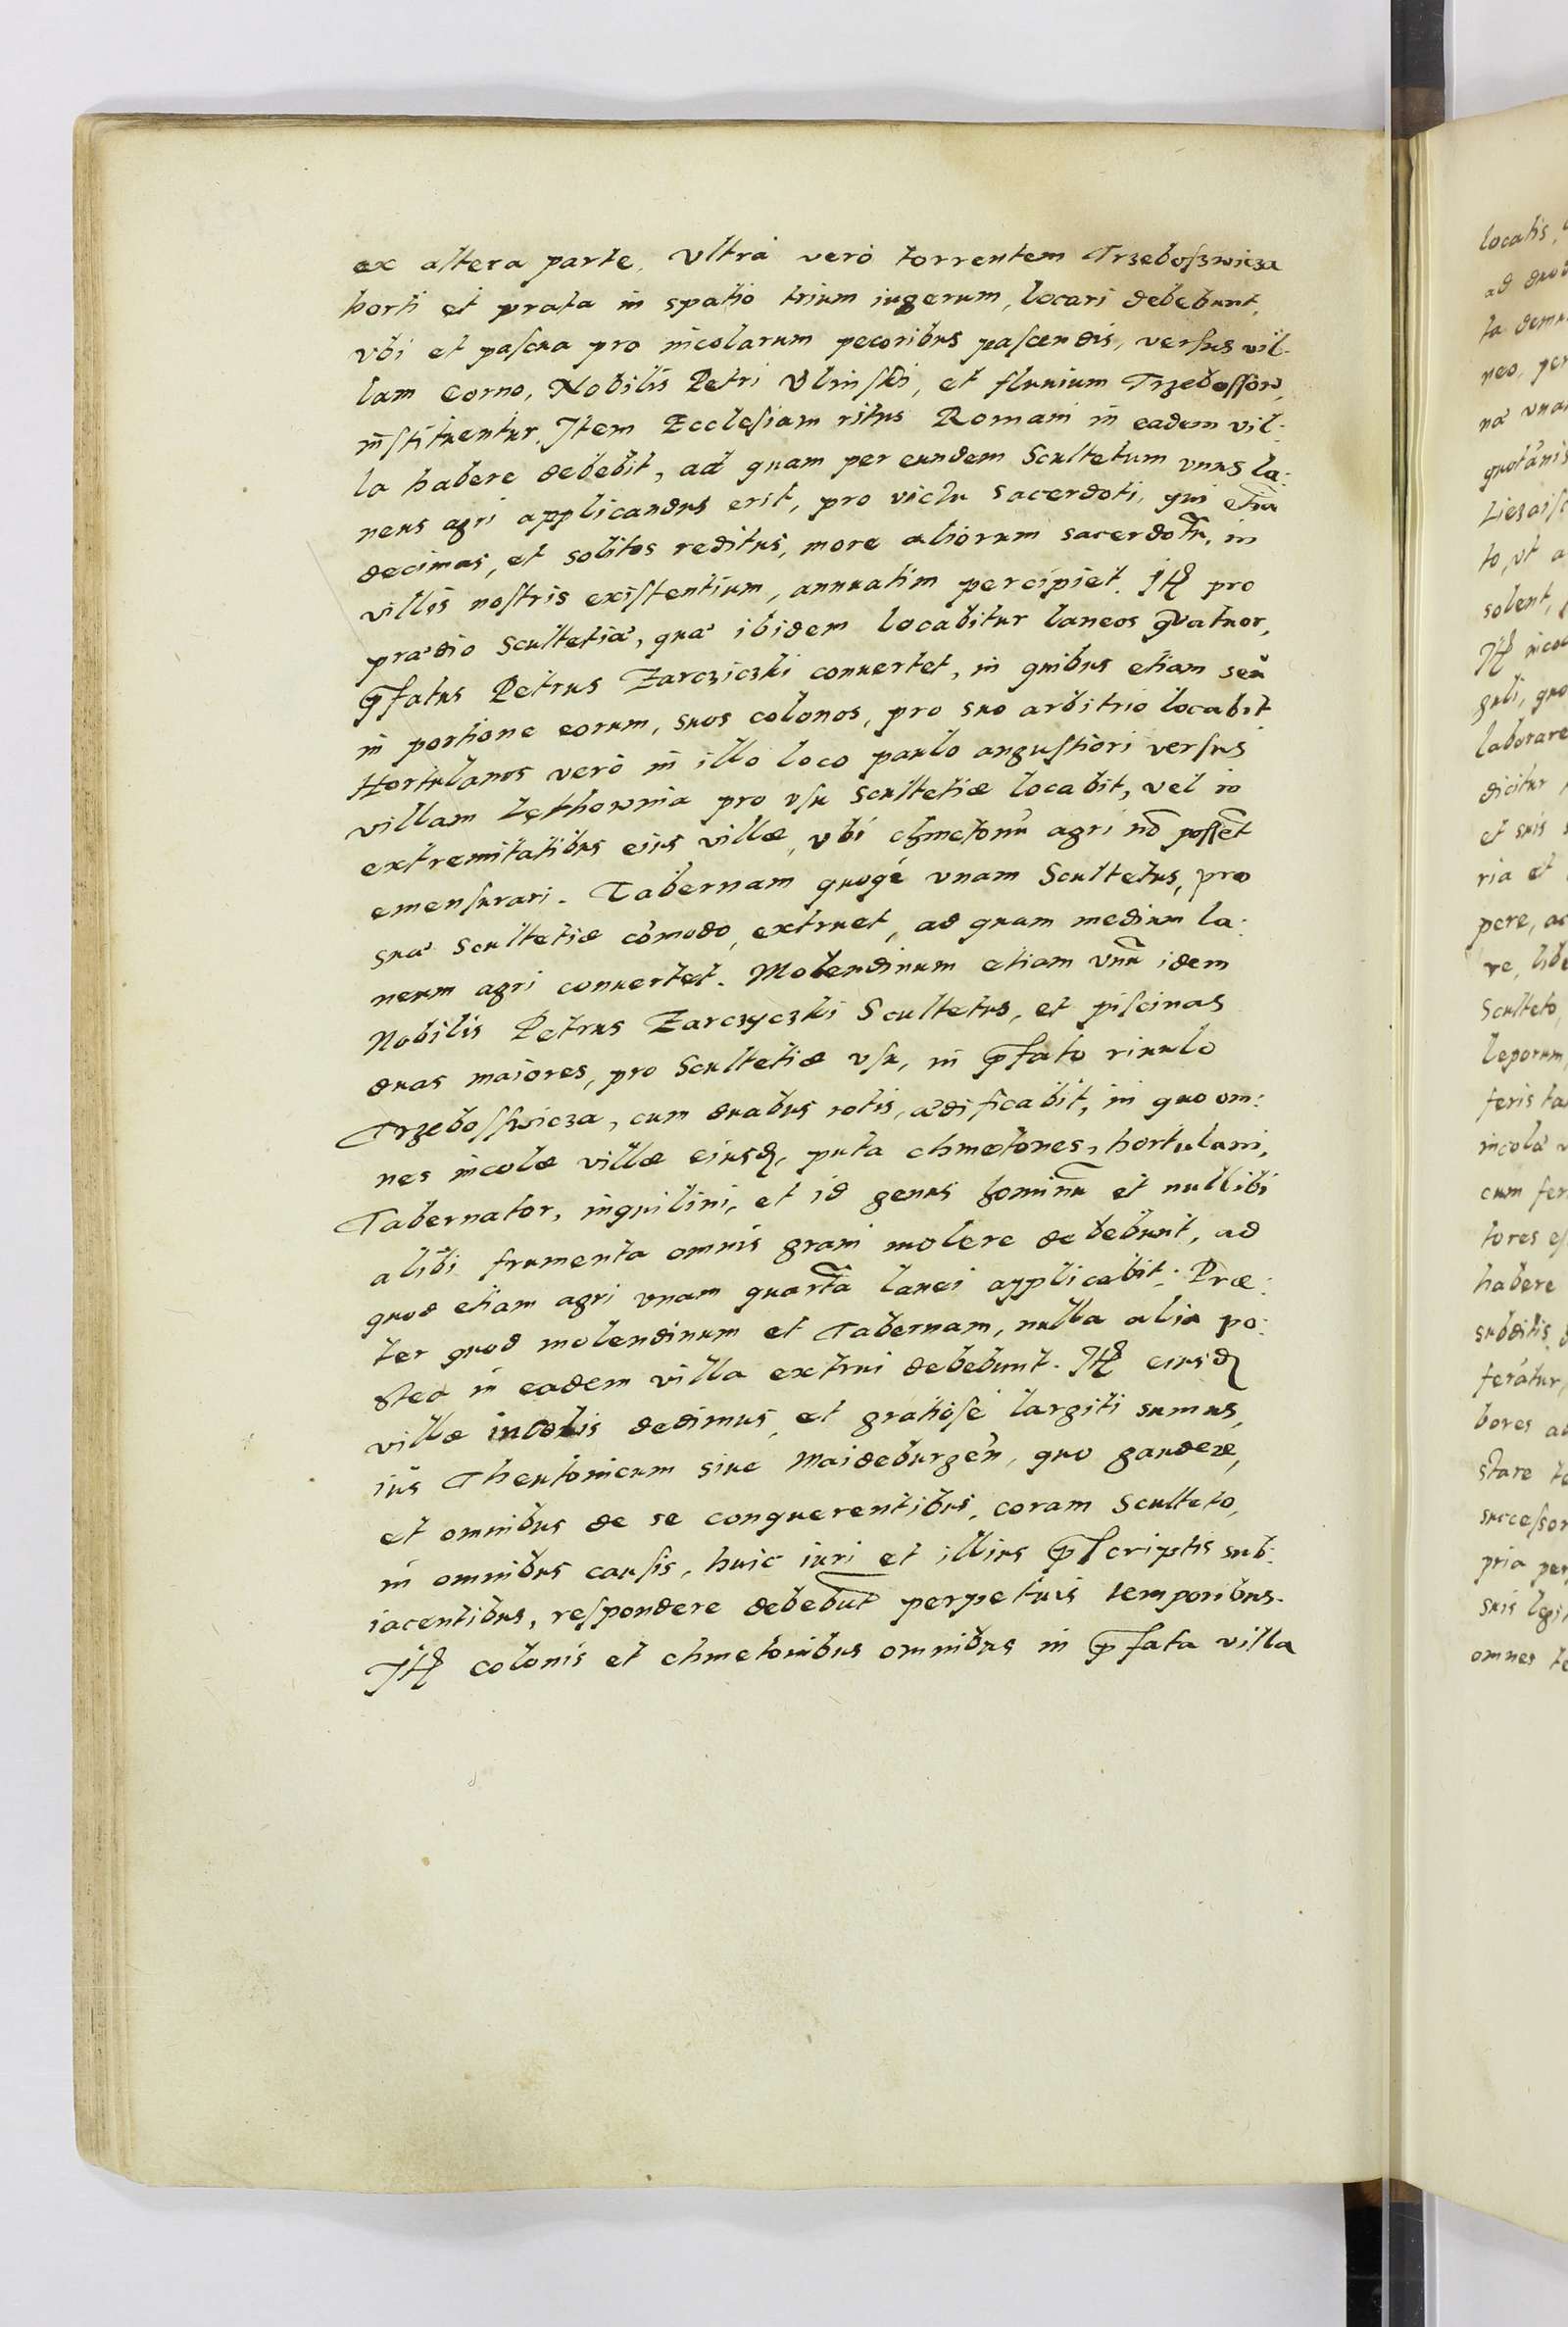 ex altera parte. Vltrà verò torrentem Trzeboſzwicza
horti et prata in spatio trium iugerum, locari debebunt,
vbi et paſcua pro incolarum pecoribus paſcendis, verſus vil-
lam Corno, Nobilis Petri Vlinſki, et fluuium Trzeboſſow,
inſtituentur. Item Eccleſiam ritus Romani in eadem vil:
la habere debebit, ad quam per eundem Scultetum vnus la:
neus agri applicandus erit, pro victu sacerdoti, qui etiã
decimas, et solitos reditus, more aliorum sacerdotũ, in
villis noſtris exiſtentium, annuatim percipiet. Itẽ pro
prædio Scultetiæ, quæ ibidem locabitur laneos quatuor,
p̃fatus Petrus Zarcziczki conuertet, in quibus etiam seu
in portione eorum, suos colonos, pro suo arbitrio locabit
Hortulanos verò in illo loco paulo anguſtiori verſus
villam Lękhownia pro vſu Scultetiæ locabit, vel in
extremitatibus eius villæ, vbi chmetonũ agri nõ poſſẽt
emenſurari. Tabernam quoqé vnam Scultetus, pro
suæ Scultetiæ cõmodo, extruet, ad quam medium la:
neum agri conuertet. Molendinum etiam vnũ idem
Nobilis Petrus Zarczyczki Scultetus, et piſcinas
duas maiores, pro Scultetiæ vſu, in p̃fato riuulo
Trzeboſſwicza, cum duabus rotis, ædificabit, in quo om:
nes incolæ villæ eiusdẽ, puta chmetones, hortulani,
Tabernator, inquilini, et id genus hominũ et nullibi
alibi frumenta omnis grani molere debebunt, ad
quod etiam agri vnam quartã lanei applicabit. Præ:
ter quod molendinum et Tabernam, nulla alia po:
stea in eadem villa extrui debebunt. Itẽ eiusdẽ
villæ incolis dedimus, et gratiosè largiti sumus,
iùs Theutonicum siue Maideburgeñ, quo gaudere,
et omnibus de se conquerentibus, coram Sculteto,
in omnibus cauſis, huic iuri et illius p̃ſcriptis sub:
iacentibus, reſpondere debebũt perpetuis temporibus.
Itẽ colonis et chmetonibus omnibus in p̃fata villa
locatis,
neo, per
quotanis
to, vt a
solent,
laborare
dicitur
et suis
ria et
pere, ac
Sculteto,
leporum,
feris ta
incolæ v
cum fer
tores eſ
habere
subditis,
ferátur,
bores ad
stare te
succeſſor
pria per
suis legi
omnes te